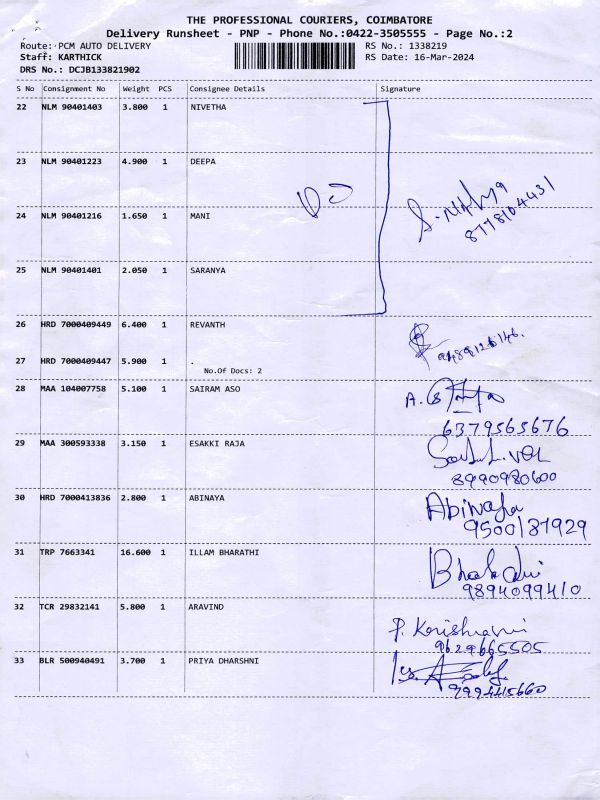 THE PROFESSIONAL COURIERS, COIMBATORE
Delivery Runsheet - PNP - Phone No.:0422-3505555 - Page No.:2
Route: PCM AUTO DELIVERY RS No.: 1338219
Staff: KARTHICK RS Date: 16-Mar-2024
DRS No.: DCJB133821902
S No Consignment No Weight PCS Consignee Details Signature
22 NLM 90401403 3.800 1 NIVETHA
23 NLM 90401223 4.900 1 DEEPA
24 NLM 90401216 1.650 1 MANI
8778104431
25 NLM 90401401 2.050 1 SARANYA
26 HRD 7000409449 6.400 1 REVANTH
27 HRD 7000409447 5.900 1 .
No.Of Docs: 2
28 MAA 104007758 5.100 1 SAIRAM ASO
6379565676
29 MAA 300593338 3.150 1 ESAKKI RAJA
8990980600
30 HRD 7000413836 2.800 1 ABINAYA Abinaya
9500187929
31 TRP 7663341 16.600 1 ILLAM BHARATHI
9894099410
32 TCR 29832141 5.800 1 ARAVIND
9629665505
33 BLR 500940491 3.700 1 PRIYA DHARSHNI